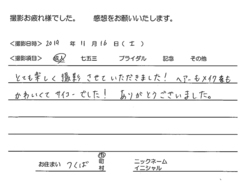 撮影お疲れ様でした。　感想をお願いいたします。
＜撮影日時＞ 2019 年 11 月 16 日（土）
＜撮影項目＞ 七五三 ブライダル 記念 その他
とても楽しく撮影させていただきました！ ヘアーもメイクも
かわいくてサイコーでした！ ありがとうございました。
お住まい つくば 市 町 村 ニックネーム イニシャル